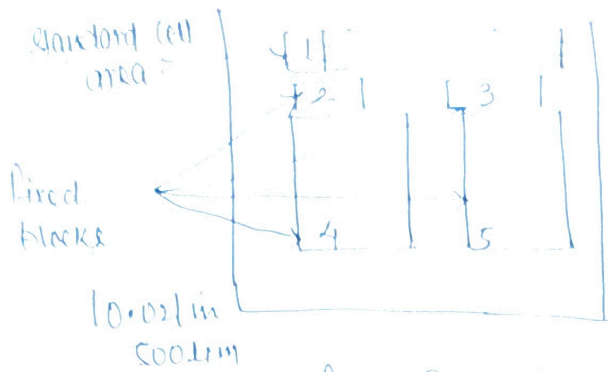 standard cell
area
1
2
3
Fixed
blocks
4
5
10.02/in
500µm